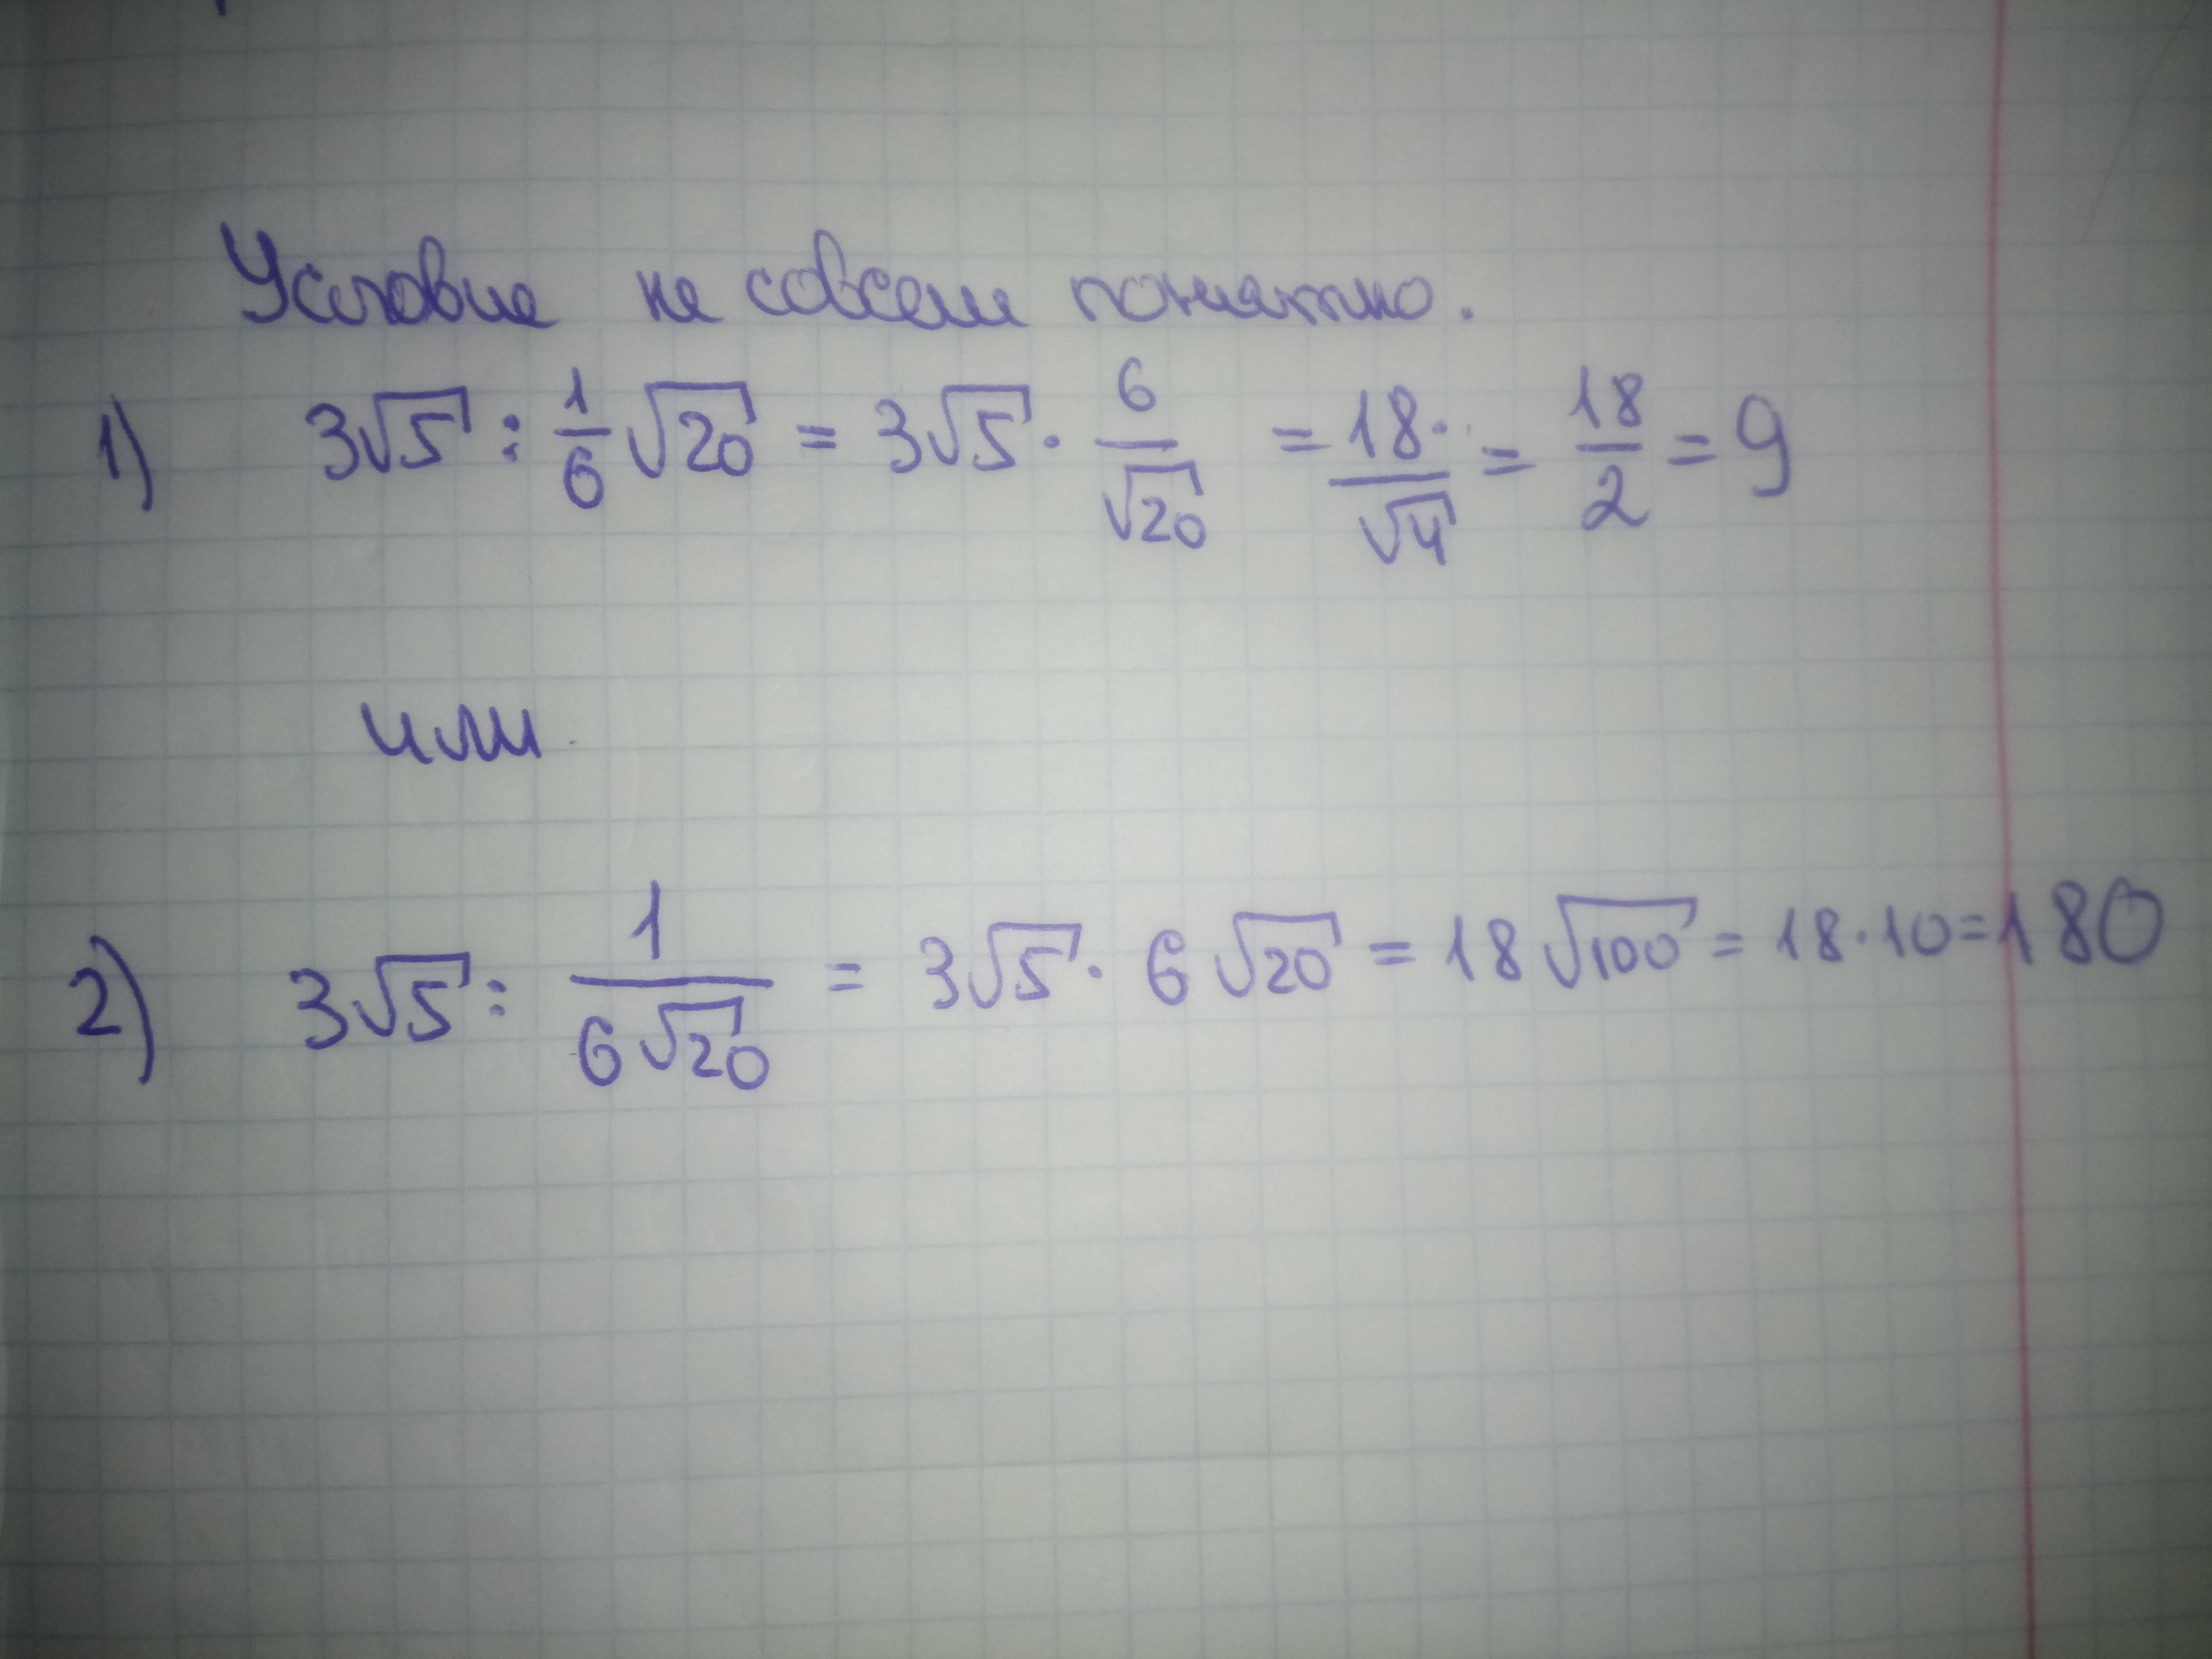 Условие не совсем понятно.
1) 3√5 : 1/6 √20 = 3√5 · 6/√20 = 18·/√4 = 18/2 = 9
или
2) 3√5 : 1/(6√20) = 3√5 · 6√20 = 18√100 = 18·10=180